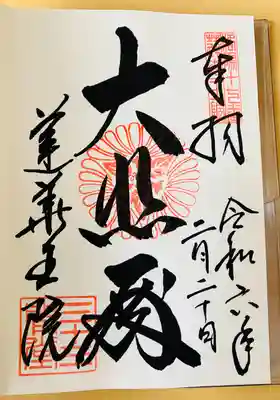 奉拝
令和六年
二月二十日
大悲殿
蓮華王院